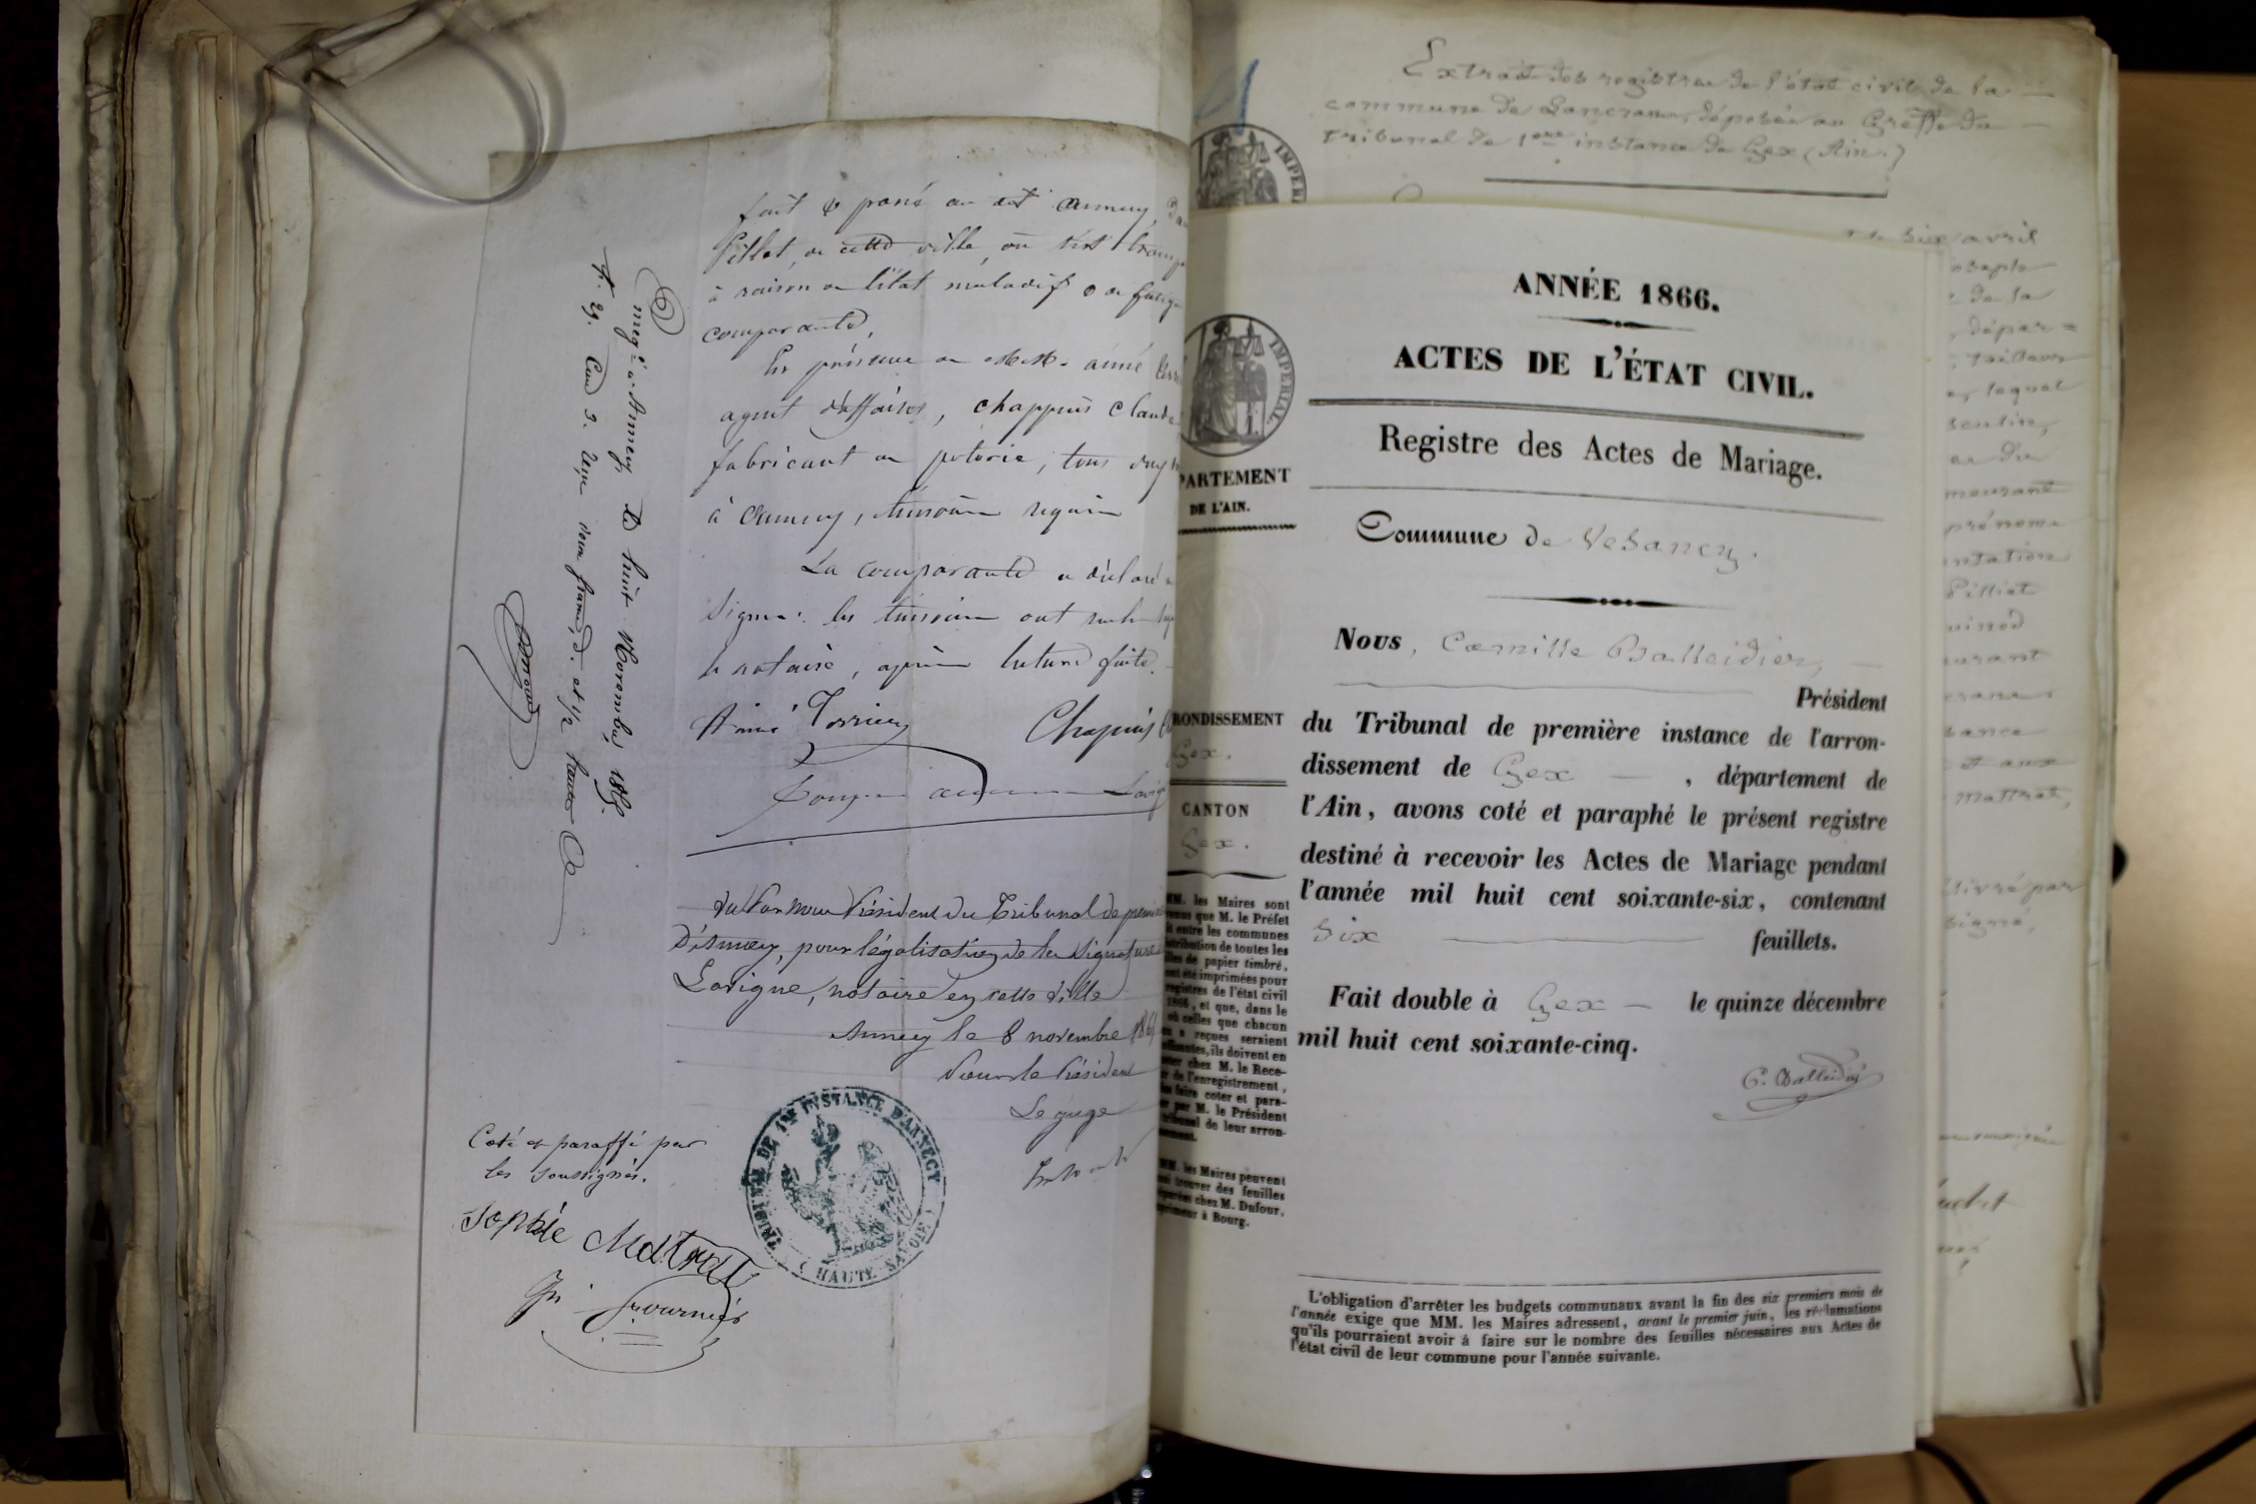 fait & passé au dit Annecy,
Pillet, de cette ville, où s'est
à raison de l'état maladif & de
comparante,
En présence de MM. Aimé
agent d'affaires, Chappuis Claude
fabricant de poterie, tous deux
à Annecy, témoins requis
La comparante a déclaré
signer: les témoins ont
le notaire, après lecture faite.
Aimé Terrier
Chapuis
Lavig
Vu Par nous Président du Tribunal de premi
D'Annecy, pour légalisation de la Signature
Lavigne, notaire en cette ville
Annecy le 8 novembre 186
Pour le Président
Le juge
TRIBUNAL DE 1RE INSTANCE D'ANNECY
(HAUTE SAVOIE)
Coté et paraffé par
les soussignés.
Sophie Mattrait
Fournier
à Annecy, le huit Novembre
deux francs, d. et 1/2
Extrait des registres de l'état civil de la
commune de Lancrans, déposée au Greffe du
tribunal de 1ère instance de Gex (Ain.)
IMPERI
six avril
oseph
de la
dépar=
tailleur
lequel
sentir,
mourant
prénoms
ntation
Pilliet
urant
sance
et aux
Mattrait,
livré par
signé,
IMPERIAL
ANNÉE 1866.
ACTES DE L'ÉTAT CIVIL.
Registre des Actes de Mariage.
PARTEMENT
DE L'AIN.
RONDISSEMENT
Gex.
CANTON
Gex.
Commune de Vesancy.
Nous, Camille Balleidier,
Président
du Tribunal de première instance de l'arron-
dissement de Gex — , département de
l'Ain, avons coté et paraphé le présent registre
destiné à recevoir les Actes de Mariage pendant
l'année mil huit cent soixante-six, contenant
six feuillets.
Fait double à Gex — le quinze décembre
mil huit cent soixante-cinq.
C. Balleidier
MM. les Maires sont
que M. le Préfet
entre les communes
de toutes les
de papier timbré,
ont été imprimées pour
registres de l'état civil
1866, et que, dans le
où celles que chacun
a reçues seraient
ils doivent en
chez M. le Rece-
de l'enregistrement,
faire coter et para-
par M. le Président
de leur arron-
MM. les Maires peuvent
trouver des feuilles
chez M. Dufour,
à Bourg.
L'obligation d'arrêter les budgets communaux avant la fin des six premiers mois de
l'année exige que MM. les Maires adressent, avant le premier juin, les réclamations
qu'ils pourraient avoir à faire sur le nombre des feuilles nécessaires aux Actes de
l'état civil de leur commune pour l'année suivante.